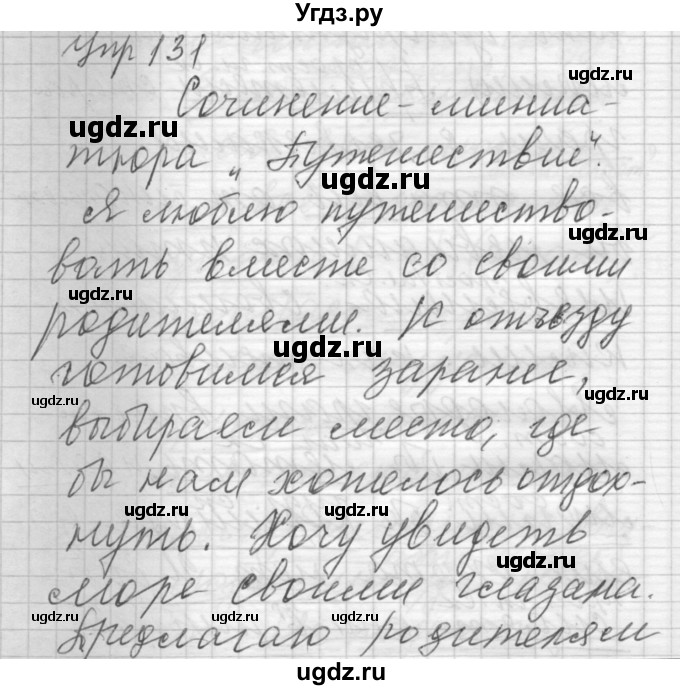 Угдз.ру
Упр 131
ugdz.ru
Сочинение-миниа-
ugdz.ru
тюра „Путешествие".
ugdz.ru
Я люблю путешество-
ugdz.ru
вать вместе со своими
ugdz.ru
родителями. К отъезду
ugdz.ru
готовимся заранее,
ugdz.ru
выбираем место, где
ugdz.ru
бы нам хотелось отдох-
ugdz.ru
нуть. Хочу увидеть
ugdz.ru
море своими глазама.
ugdz.ru ugdz.ru ugdz.ru
Предлагаю родителям
ugdz.ru